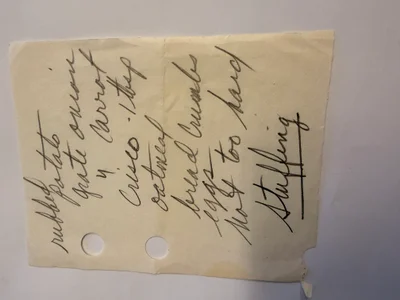 rubbed
potato
grate onion
" carrot
Crisco - 1 tbsp
oatmeal
bread crumbs
eggs
not too hard
Stuffing